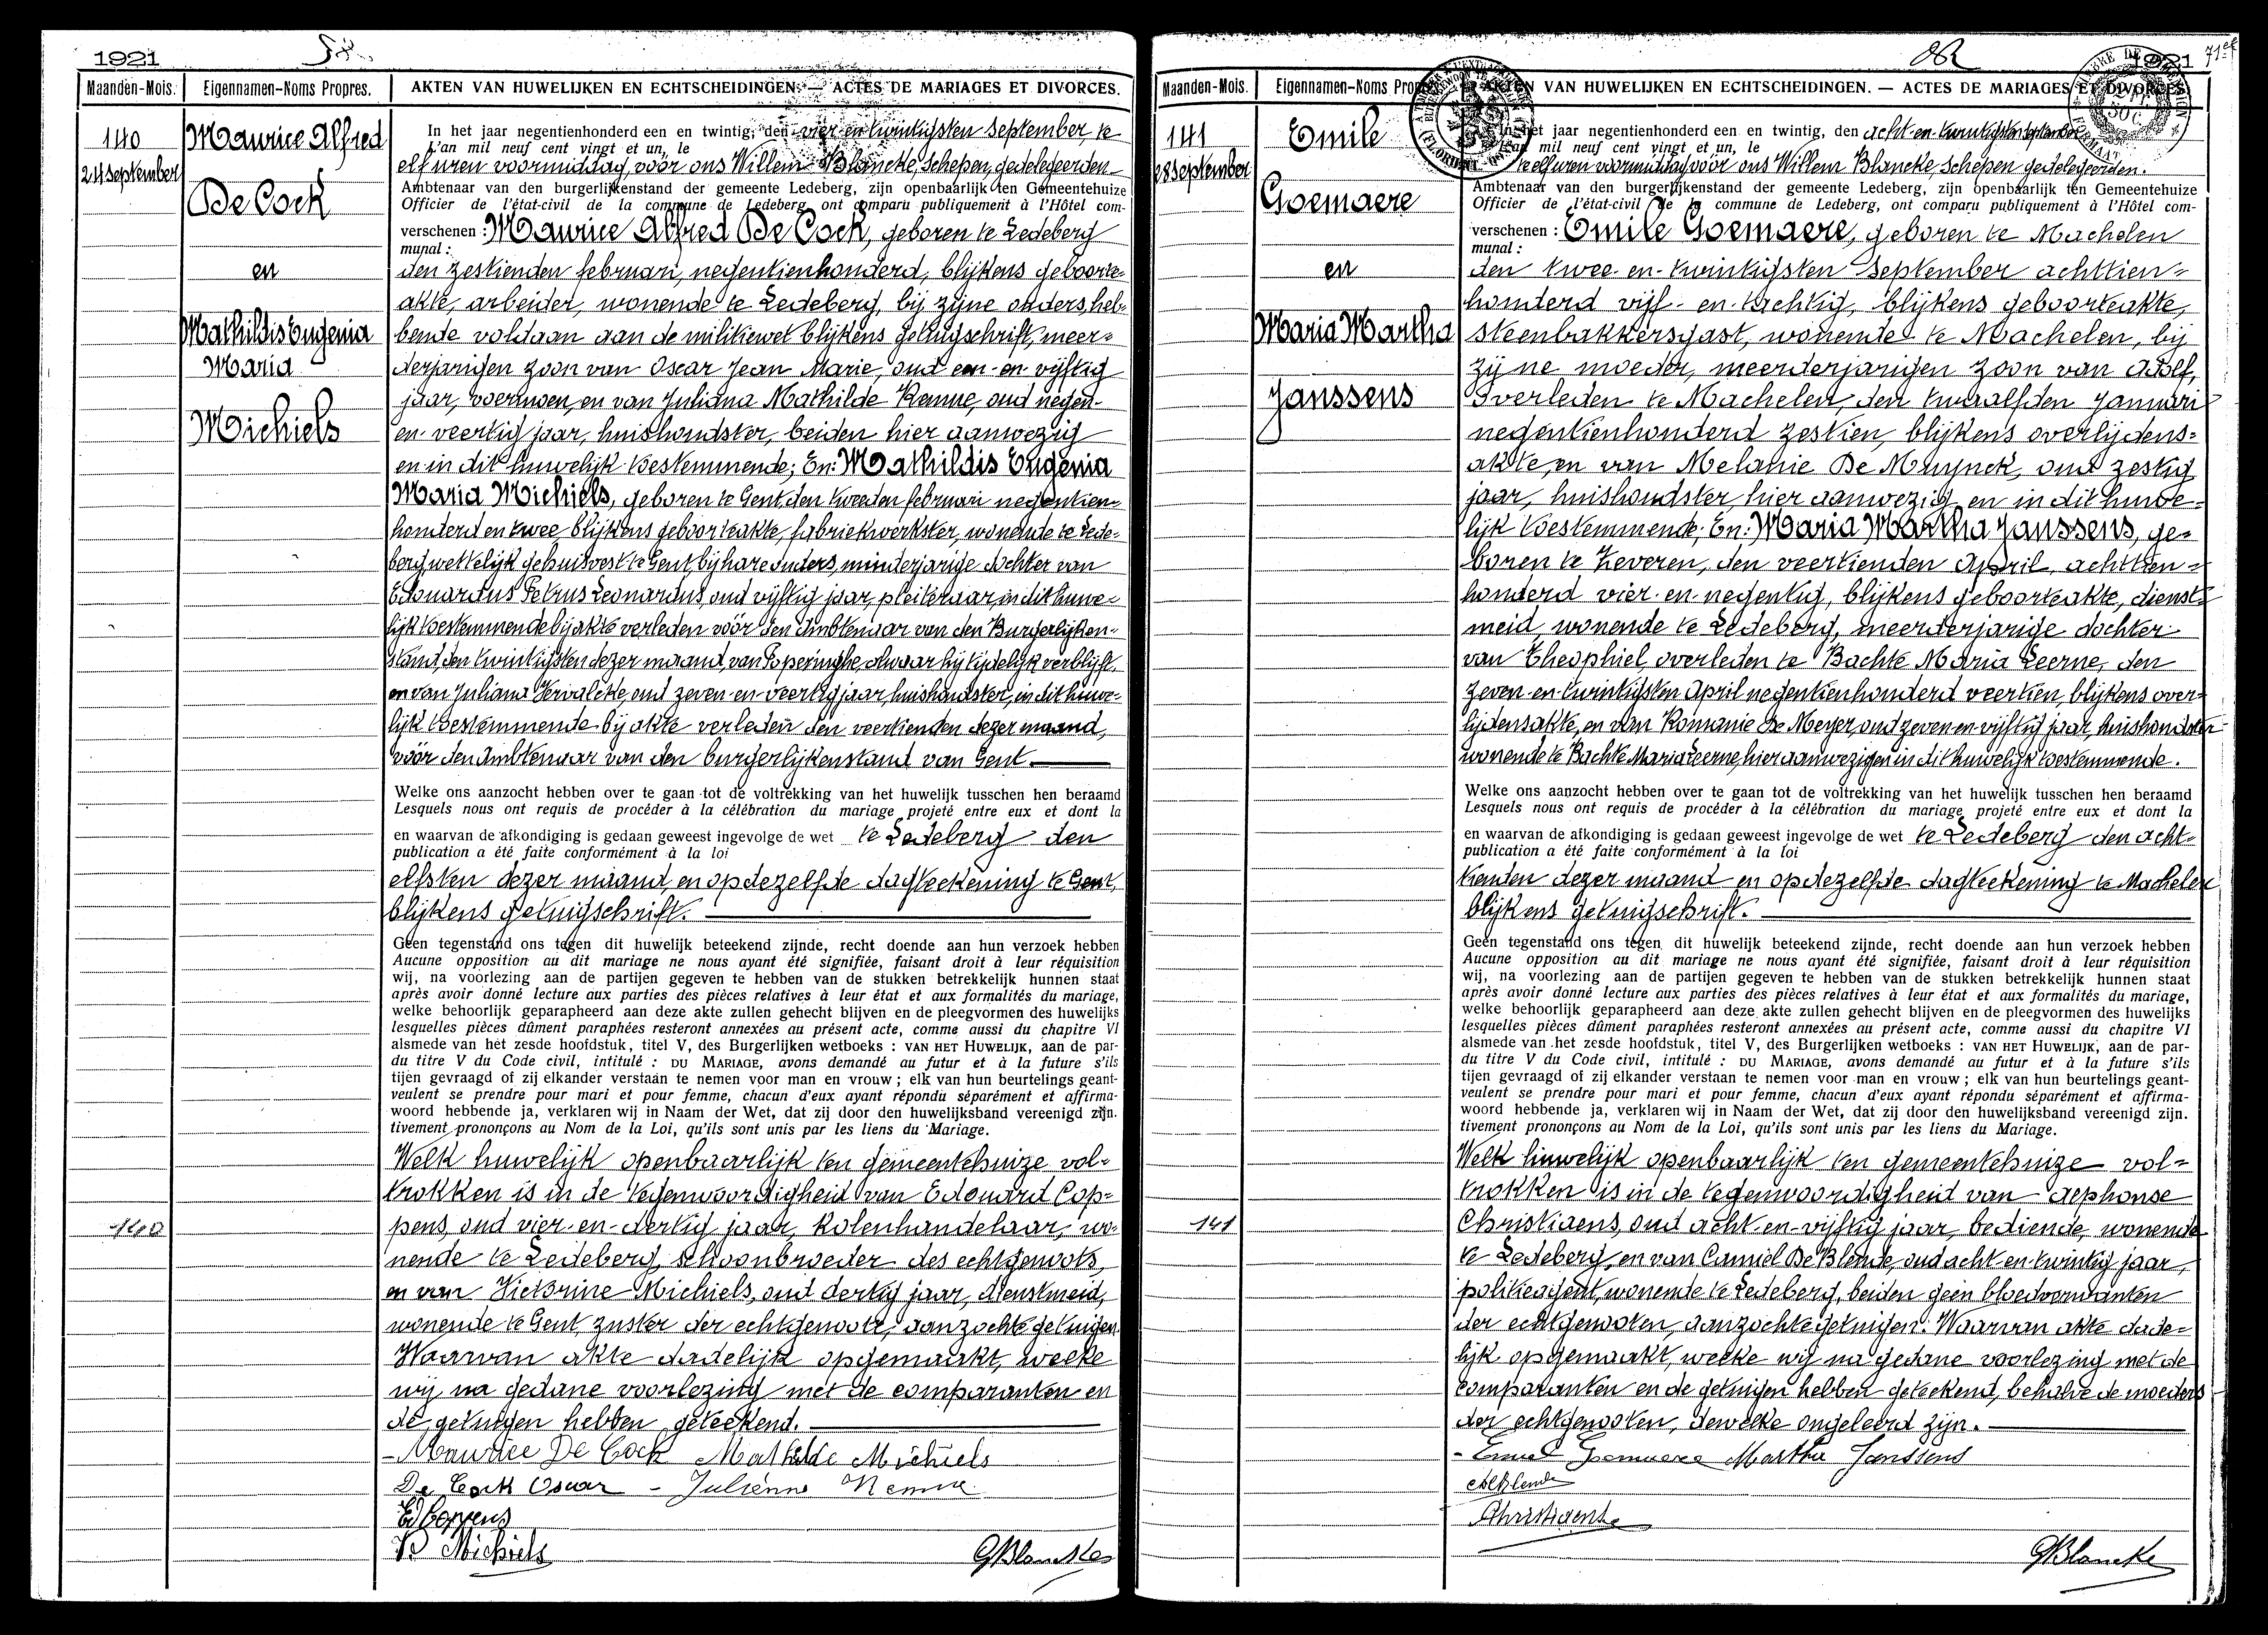 1921
Maanden-Mois. Eigennamen-Noms Propres. AKTEN VAN HUWELIJKEN EN ECHTSCHEIDINGEN. — ACTES DE MARIAGES ET DIVORCES.
140
24 September
Maurice Alfred
De Cock
en
Mathildis Eugenia
Maria
Michiels
In het jaar negentienhonderd een en twintig, den vier en twintigsten September, te
L'an mil neuf cent vingt et un, le
elf uren voormiddag, vóór ons Willem Blancke, Schepen, gedelegeerden
Ambtenaar van den burgerlijkenstand der gemeente Ledeberg, zijn openbaarlijk ten Gemeentehuize
Officier de l'état-civil de la commune de Ledeberg, ont comparu publiquement à l'Hôtel com-
verschenen : Maurice Alfred De Cock, geboren te Ledeberg
munal :
den zestienden februari, negentienhonderd, blijkens geboorte-
akte, arbeider, wonende te Ledeberg, bij zijne ouders, heb-
bende voldaan aan de militiewet blijkens getuigschrift, meer-
derjarigen zoon van Oscar Jean Marie, oud een-en-vijftig
jaar, voerman, en van Juliana Mathilde Remue, oud negen-
en-veertig jaar, huishoudster, beiden hier aanwezig
en in dit huwelijk toestemmende; En: Mathildis Eugenia
Maria Michiels, geboren te Gent, den tweeden februari negentien-
honderd en twee, blijkens geboorteakte, fabriekwerkster, wonende te Lede-
berg wettelijk gehuisvest te Gent, bij hare ouders, minderjarige dochter van
Edouardus Petrus Leonardus, oud vijftig jaar, pleiteraar, in dit huwe-
lijk toestemmende bij akte verleden vóór den Ambtenaar van den Burgerlijken-
stand, den twintigsten dezer maand, van Poperinghe, alwaar hij tijdelijk verblijft,
en van Juliana Vervalcke, oud zeven-en-veertig jaar, huishoudster, in dit huwe-
lijk toestemmende bij akte verleden den veertienden dezer maand,
vóór den Ambtenaar van den burgerlijkenstand van Gent.
Welke ons aanzocht hebben over te gaan tot de voltrekking van het huwelijk tusschen hen beraamd
Lesquels nous ont requis de procéder à la célébration du mariage projeté entre eux et dont la
en waarvan de afkondiging is gedaan geweest ingevolge de wet te Ledeberg den
publication a été faite conformément à la loi
elfsten dezer maand, en op dezelfde dagteekening te Gent,
blijkens getuigschrift.
Geen tegenstand ons tegen dit huwelijk beteekend zijnde, recht doende aan hun verzoek hebben
Aucune opposition au dit mariage ne nous ayant été signifiée, faisant droit à leur réquisition
wij, na voorlezing aan de partijen gegeven te hebben van de stukken betrekkelijk hunnen staat
après avoir donné lecture aux parties des pièces relatives à leur état et aux formalités du mariage,
welke behoorlijk geparapheerd aan deze akte zullen gehecht blijven en de pleegvormen des huwelijks
lesquelles pièces dûment paraphées resteront annexées au présent acte, comme aussi du chapitre VI
alsmede van het zesde hoofdstuk, titel V, des Burgerlijken wetboeks : VAN HET HUWELIJK, aan de par-
du titre V du Code civil, intitulé : DU MARIAGE, avons demandé au futur et à la future s'ils
tijen gevraagd of zij elkander verstaan te nemen voor man en vrouw ; elk van hun beurtelings geant-
veulent se prendre pour mari et pour femme, chacun d'eux ayant répondu séparément et affirma-
woord hebbende ja, verklaren wij in Naam der Wet, dat zij door den huwelijksband vereenigd zijn.
tivement prononçons au Nom de la Loi, qu'ils sont unis par les liens du Mariage.
Welk huwelijk openbaarlijk ten gemeentehuize vol-
trokken is in de tegenwoordigheid van Edouard Cop-
140
pens, oud vier-en-dertig jaar, kolenhandelaar, wo-
nende te Ledeberg, schoonbroeder des echtgenoots,
en van Victorine Michiels, oud dertig jaar, dienstmeid,
wonende te Gent, zuster der echtgenoote, aanzochte getuigen.
Waarvan akte dadelijk opgemaakt, welke
wij na gedane voorlezing met de comparanten en
de getuigen hebben geteekend.
Maurice De Cock Mathilde Michiels
De Cock Oscar - Julienne Remue
Ed Coppens
V. Michiels
GBlancke
82
1921 71e
Maanden-Mois. Eigennamen-Noms Propres. AKTEN VAN HUWELIJKEN EN ECHTSCHEIDINGEN. — ACTES DE MARIAGES ET DIVORCES.
141
28 September
Emile
Goemaere
en
Maria Martha
Janssens
In het jaar negentienhonderd een en twintig, den acht-en-twintigsten September
L'an mil neuf cent vingt et un, le
te elf uren voormiddag vóór ons Willem Blancke, Schepen gedelegeerden.
Ambtenaar van den burgerlijkenstand der gemeente Ledeberg, zijn openbaarlijk ten Gemeentehuize
Officier de l'état-civil de la commune de Ledeberg, ont comparu publiquement à l'Hôtel com-
verschenen : Emile Goemaere, geboren te Machelen
munal :
den twee-en-twintigsten September achttien-
honderd vijf-en-tachtig, blijkens geboorteakte,
steenbakkersgast, wonende te Machelen, bij
zijne moeder, meerderjarigen zoon van Adolf,
overleden te Machelen, den twaalfden Januari
negentienhonderd zestien, blijkens overlijdens-
akte, en van Melanie De Muynck, oud zestig
jaar, huishoudster, hier aanwezig en in dit huwe-
lijk toestemmende; En: Maria Martha Janssens, ge-
boren te Zeveren, den veertienden April, achttien-
honderd vier-en-negentig, blijkens geboorteakte, dienst-
meid, wonende te Ledeberg, meerderjarige dochter
van Theophiel, overleden te Bachte Maria Leerne, den
zeven-en-twintigsten April negentienhonderd veertien, blijkens over-
lijdensakte, en van Romanie De Meyer, oud zeven-en-vijftig jaar, huishoudster
wonende te Bachte Maria Leerne, hier aanwezig en in dit huwelijk toestemmende.
Welke ons aanzocht hebben over te gaan tot de voltrekking van het huwelijk tusschen hen beraamd
Lesquels nous ont requis de procéder à la célébration du mariage projeté entre eux et dont la
en waarvan de afkondiging is gedaan geweest ingevolge de wet te Ledeberg den acht-
publication a été faite conformément à la loi
tienden dezer maand en op dezelfde dagteekening te Machelen
blijkens getuigschrift.
Geen tegenstand ons tegen dit huwelijk beteekend zijnde, recht doende aan hun verzoek hebben
Aucune opposition au dit mariage ne nous ayant été signifiée, faisant droit à leur réquisition
wij, na voorlezing aan de partijen gegeven te hebben van de stukken betrekkelijk hunnen staat
après avoir donné lecture aux parties des pièces relatives à leur état et aux formalités du mariage,
welke behoorlijk geparapheerd aan deze akte zullen gehecht blijven en de pleegvormen des huwelijks
lesquelles pièces dûment paraphées resteront annexées au présent acte, comme aussi du chapitre VI
alsmede van het zesde hoofdstuk, titel V, des Burgerlijken wetboeks : VAN HET HUWELIJK, aan de par-
du titre V du Code civil, intitulé : DU MARIAGE, avons demandé au futur et à la future s'ils
tijen gevraagd of zij elkander verstaan te nemen voor man en vrouw ; elk van hun beurtelings geant-
veulent se prendre pour mari et pour femme, chacun d'eux ayant répondu séparément et affirma-
woord hebbende ja, verklaren wij in Naam der Wet, dat zij door den huwelijksband vereenigd zijn.
tivement prononçons au Nom de la Loi, qu'ils sont unis par les liens du Mariage.
Welk huwelijk openbaarlijk ten gemeentehuize vol-
trokken is in de tegenwoordigheid van Alphonse
141
Christiaens, oud acht-en-vijftig jaar, bediende, wonende
te Ledeberg, en van Camiel De Blende, oud acht-en-twintig jaar,
politieagent, wonende te Ledeberg, beiden geen bloedverwanten
der echtgenooten, aanzochte getuigen. Waarvan akte dade-
lijk opgemaakt, welke wij na gedane voorlezing met de
comparanten en de getuigen hebben geteekend, behalve de moeders
der echtgenooten, dewelke ongeleerd zijn.
Emiel Goemaere Martha Janssens
Christiaens
GBlancke